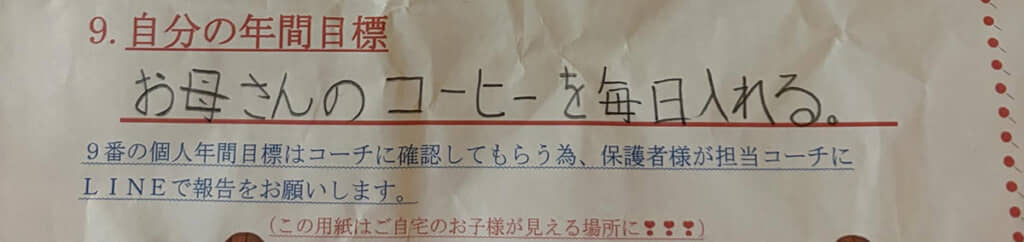 9. 自分の年間目標
お母さんのコーヒーを毎日入れる。
9番の個人年間目標はコーチに確認してもらう為、保護者様が担当コーチに
LINEで報告をお願いします。
(この用紙はご自宅のお子様が見える場所に❣❣❣)